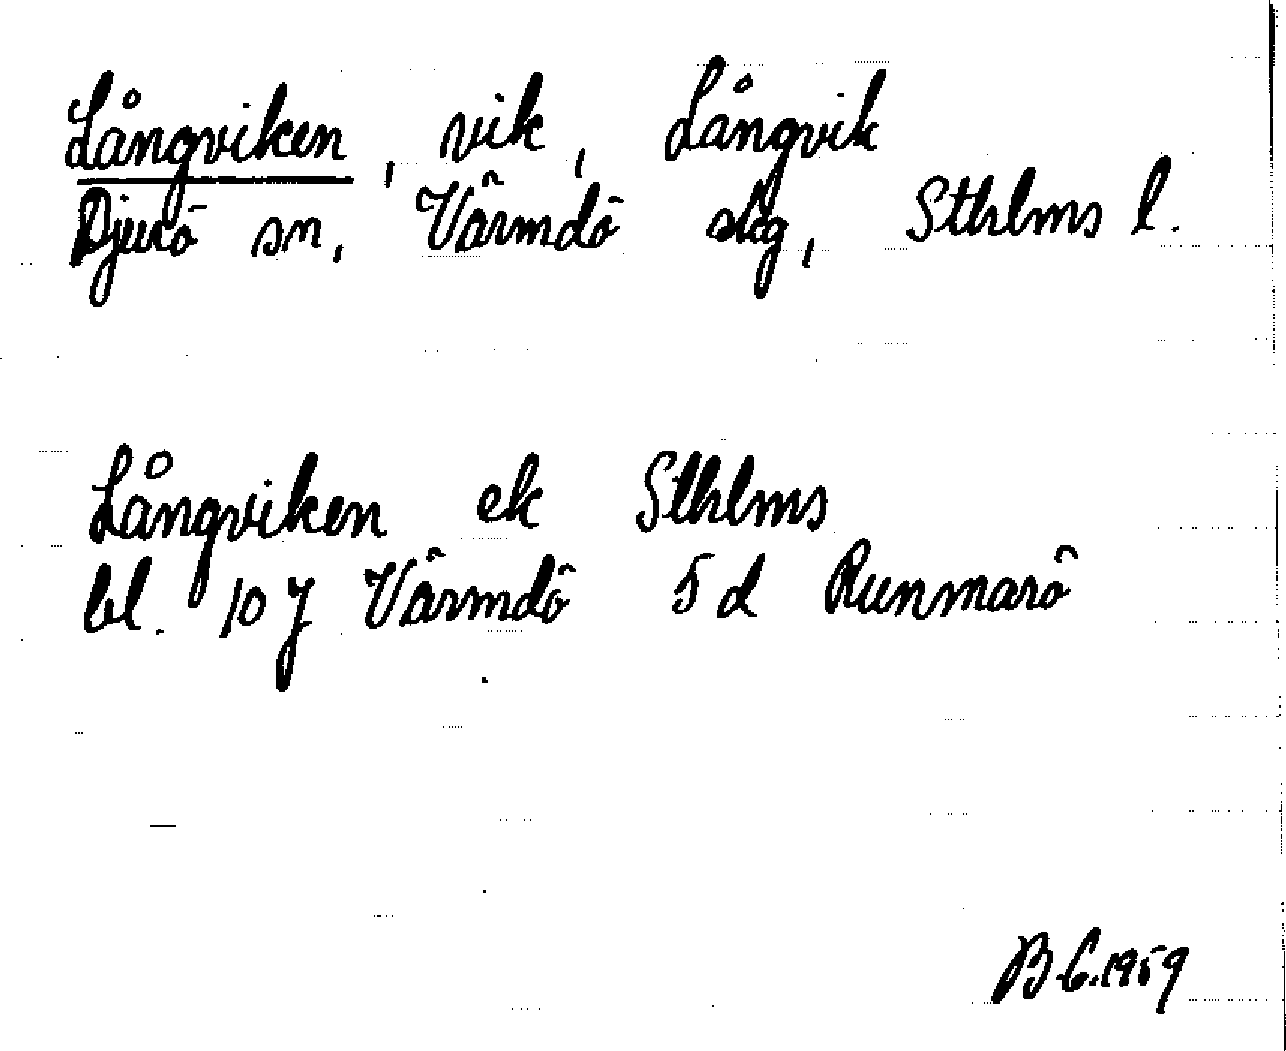 Långviken, vik, Långvik
Djurö sn, Värmdö skg, Sthlms l.
Långviken ek Sthlms
bl. 10 J Värmdö 5 d Runmarö
B.G. 1959